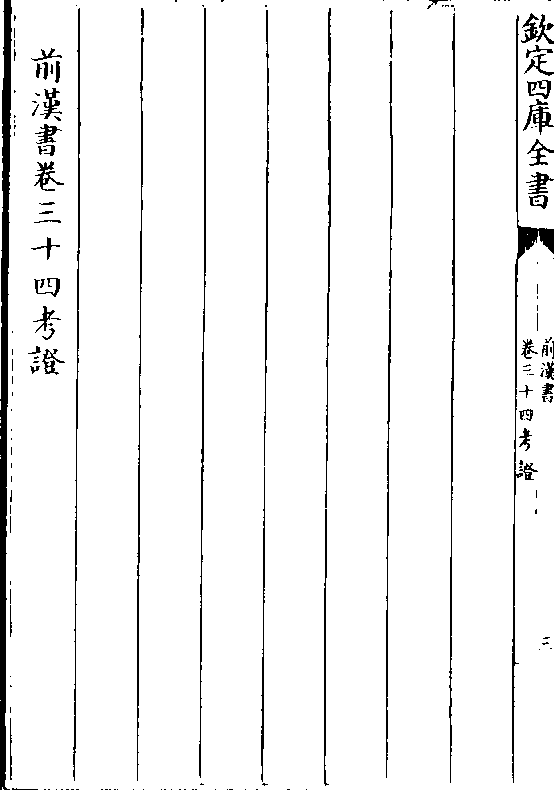 欽定四庫全書
前漢書
卷三十四考證
三
前漢書卷三十四考證